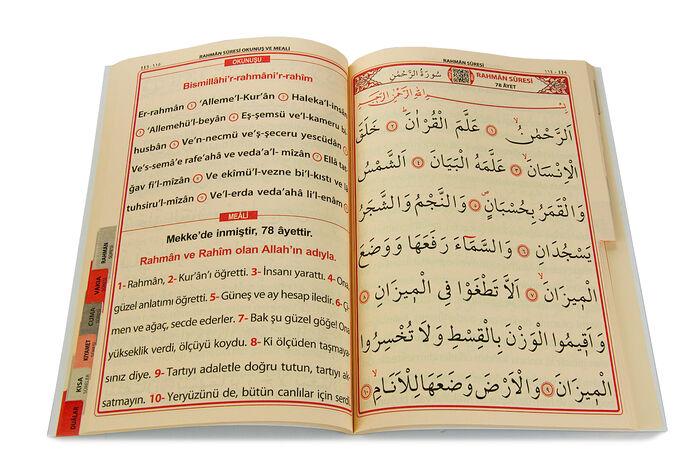 RAHMÂN SÛRESİ OKUNUŞ VE MEALİ
OKUNUŞU
Bismillâhi'r-rahmâni'r-rahîm
Er-rahmân ① 'Alleme'l-Kur'ân ② Haleka'l-insân
③ 'Allemehü'l-beyân ④ Eş-şemsü ve'l-kameru bi
husbân ⑤ Ve'n-necmü ve'ş-şeceru yescüdân
Ve's-semâ'e rafe'ahâ ve veda'a'l- mîzân ⑦ Ellâ
ğav fi'l-mîzân ⑧ Ve ekîmü'l-vezne bi'l-kıstı ve lâ
tuhsiru'l-mîzân ⑨ Ve'l-erda veda'ahâ li'l-enâm
MEÂLİ
Mekke'de inmiştir, 78 âyettir.
Rahmân ve Rahîm olan Allah'ın adıyla.
1- Rahmân, 2- Kur'ân'ı öğretti. 3- İnsanı yarattı. 4- Ona
güzel anlatımı öğretti. 5- Güneş ve ay hesap iledir. 6-
men ve ağaç, secde ederler. 7- Bak şu güzel göğe! Onu
yükseklik verdi, ölçüyü koydu. 8- Ki ölçüden taşmaya-
sınız diye. 9- Tartıyı adaletle doğru tutun, tartıyı
satmayın. 10- Yeryüzünü de, bütün canlılar için
RAHMAN
VAKIA
CUMA
KIYAMET
KISA
DUALAR
RAHMÂN SÛRESİ
سُورَةُ الرَّحْمٰنِ
RAHMÂN SÛRESİ
78 ÂYET
بِسْمِ اللّٰهِ الرَّحْمٰنِ الرَّحِيمِ
اَلرَّحْمٰنُۙ ١ عَلَّمَ الْقُرْاٰنَۜ ٢ خَلَقَ
الْاِنْسَانَۙ ٣ عَلَّمَهُ الْبَيَانَ ٤ اَلشَّمْسُ
وَالْقَمَرُ بِحُسْبَانٍۖ ٥ وَالنَّجْمُ وَالشَّجَرُ
يَسْجُدَانِ ٦ وَالسَّمَٓاءَ رَفَعَهَا وَوَضَعَ
الْمِيزَانَۙ ٧ اَلَّا تَطْغَوْا فِي الْمِيزَانِ ٨
وَاَقِيمُوا الْوَزْنَ بِالْقِسْطِ وَلَا تُخْسِرُوا
الْمِيزَانَ ٩ وَالْاَرْضَ وَضَعَهَا لِلْاَنَامِۙ ١٠